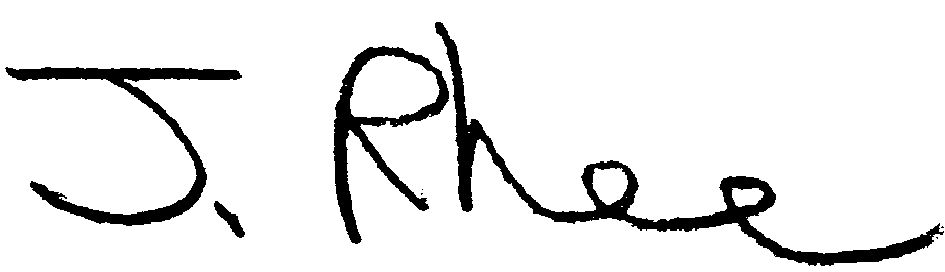 J. Rhee